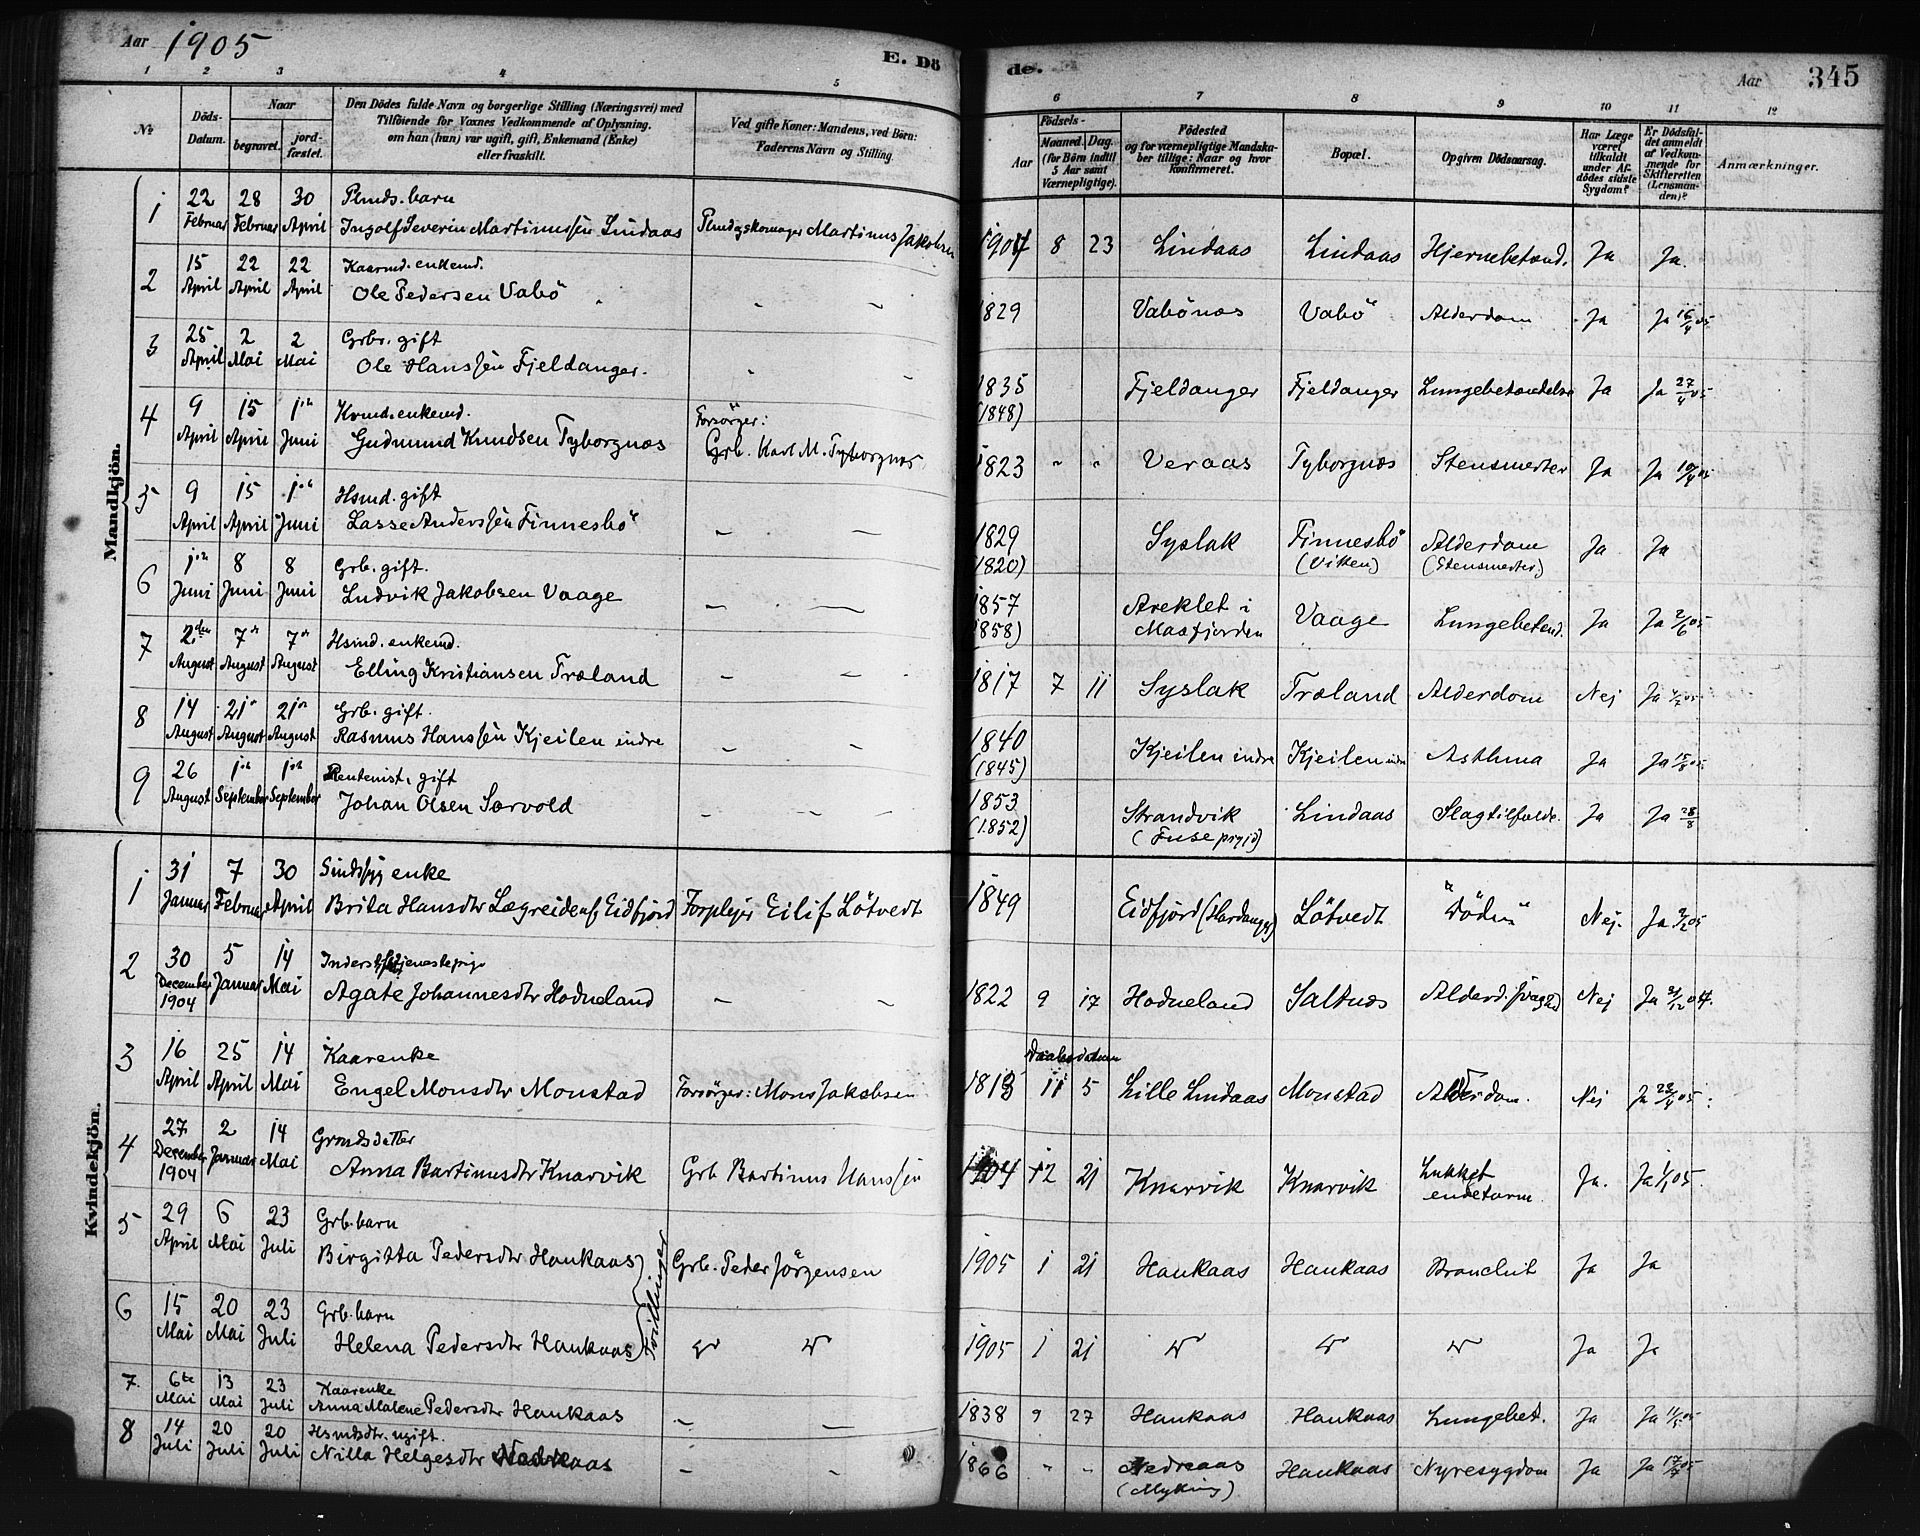 Aar 1905
E. Dö
de.
Aar
345
1 2 3 4 5 6 7 8 9 10 11 12
№
Döds-Datum.
Naar
begravet.
jord-fæstet.
Den Dödes fulde Navn og borgerlige Stilling (Næringsvei) med
Tilföiende for Voxnes Vedkommende af Oplysning.
om han (hun) var ugift, gift, Enkemand (Enke)
eller fraskilt.
Ved gifte Koner: Mandens, ved Börn:
Faderens Navn og Stilling.
Födsels-
Aar
Maaned. Dag.
(for Börn indtil
5 Aar samt
Værnepligtige).
Födested
og for værnepligtige Mandska-
ber tillige: Naar og hvor
konfirmeret.
Bopæl.
Opgiven Dödsaarsag.
Har Læge
været
tilkaldt
under Af-
dödes sidste
Sygdom?
Er Dödsfal-
det anmeldt
af Vedkom-
mende for
Skifteretten
(Lensman-
den)?
Anmærkninger.
Mandkjön.
1 22 Februar 28 Februar 30 April
Plmds. barn
Ingolf Severin Martinussen Lindaas Martinus Jakobsen 1904 8 23 Lindaas Lindaas Hjernebetænd. Ja Ja.
2 15 April 22 April 22 April
Kaarmd. enkemd.
Ole Pedersen Vabö 1829 Vabönæs Vabö Alderdom Ja Ja 16/4 05
3 25 April 2 Mai 2 Mai
Grbr. gift
Ole Hanssen Fjeldanger. 1835 (1848) Fjeldanger Fjeldanger Lungebetændelse Ja Ja 27/4 05
4 9 April 15 April 1ste Juni
Kvmd. enkemd.
Gudmund Knudsen Tyborgnæs
Forsörger:
Grb. Karl M. Tyborgnæs 1823 " " Veraas Tyborgnæs Stensmerter Ja Ja 10/4 05
5 9 April 15 April 1ste Juni
Hsmd. gift
Lasse Anderssen Finnesbö 1829 (1820) Syslak Finnesbö (Vitten) Alderdom (Stensmerter) Ja Ja
6 1ste Juni 8 Juni 8 Juni
Grb. gift.
Ludvik Jakobsen Vaage 1857 (1858) Areklet i Masfjorden Vaage Lungebetænd. Ja Ja 2/6 05
7 2den August 7de August 7de August
Hsmd. enkemd.
Elling Kristiansen Træland 1817 7 11 Syslak Træland Alderdom Nej Ja
8 14 August 21de August 21de August
Grb. gift.
Rasmus Hanssen Kjeilen indre 1840 (1845) Kjeilen indre Kjeilen indre Asthma Ja Ja 15/8 05
9 26 August 1ste September 1ste September
Rentenist. gift
Johan Olsen Sørvold 1853 (1852) Strandvik (Fuse prgjd) Lindaas Slagtilfælde. Ja Ja 28/8
Kvindekjön.
1 31 Januar 7 Februar 30 April
Sindssyg enke
Brita Hansdtr Lægreiden af Eidfjord Forplejer Eilif Lötvedt 1849 Eidfjord (Hardanger) Lötvedt "Döden" Nej. Ja 2/2 05
2 30 December 1904 5 Januar 14 Mai
Agate Johannesdtr Hodneland 1822 9 17 Hodneland Saltnæs Nej Ja 31/12 04.
3 16 April 25 April 14 Mai
Kaarenke
Engel Monsdtr Monstad Forsörger: Mons Jakobsen Daabsdatum 1813 11 5 Lille Lindaas Monstad Alderdom. Nej Ja 23/4 05
4 27 December 1904 2 Januar 14 Mai
Grmdsdatter
Anna Bartinusdtr Knarvik Grb Bartinus Hanssen 1904 12 21 Knarvik Knarvik Lukket endetarm Ja. Ja 1/1 05.
5 29 April 6 Mai 23 Juli
Grb. barn
Birgitta Pedersdtr Haukaas Grb. Peder Jörgensen 1905 1 21 Haukaas Haukaas Bronchit Ja Ja
Tvillinger
6 15 Mai 20 Mai 23 Juli
Grb. barn
Helena Pedersdtr Haukaas 1905 1 21 Ja Ja
7. 6te Mai 13 Mai 23 Juli
Kaarenke
Anna Malene Pedersdtr Haukaas 1838 9 27 Haukaas Haukaas Lungebet. Ja Ja
8 14 Juli 20 Juli 20 Juli
Hsmdsdtr. ugift.
Nilla Helgesdtr 1866 " " Nedreaas (Myking) Haukaas Nyresygdom Ja Ja 17/7 05